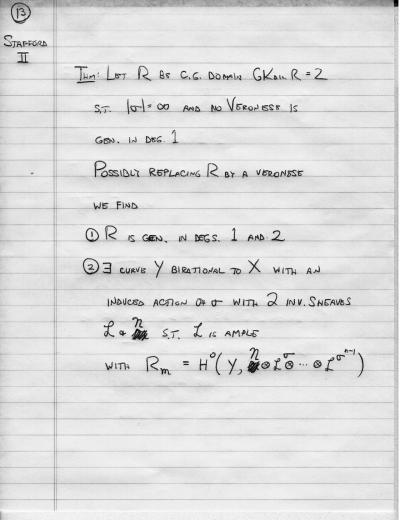 13
STAFFORD
II
THM: LET R BE C.G. DOMAIN GKDIM R = 2
S.T. |σ| = ∞ AND NO VERONESE IS
GEN. IN DEG. 1
POSSIBLY REPLACING R BY A VERONESE
WE FIND
① R IS GEN. IN DEGS. 1 AND 2
② ∃ CURVE Y BIRATIONAL TO X WITH AN
INDUCED ACTION OF σ WITH 2 INV. SHEAVES
L & N S.T. L IS AMPLE
WITH R_m = H⁰(Y, N⊗L^σ⊗···⊗L^{σ^{n-1}})